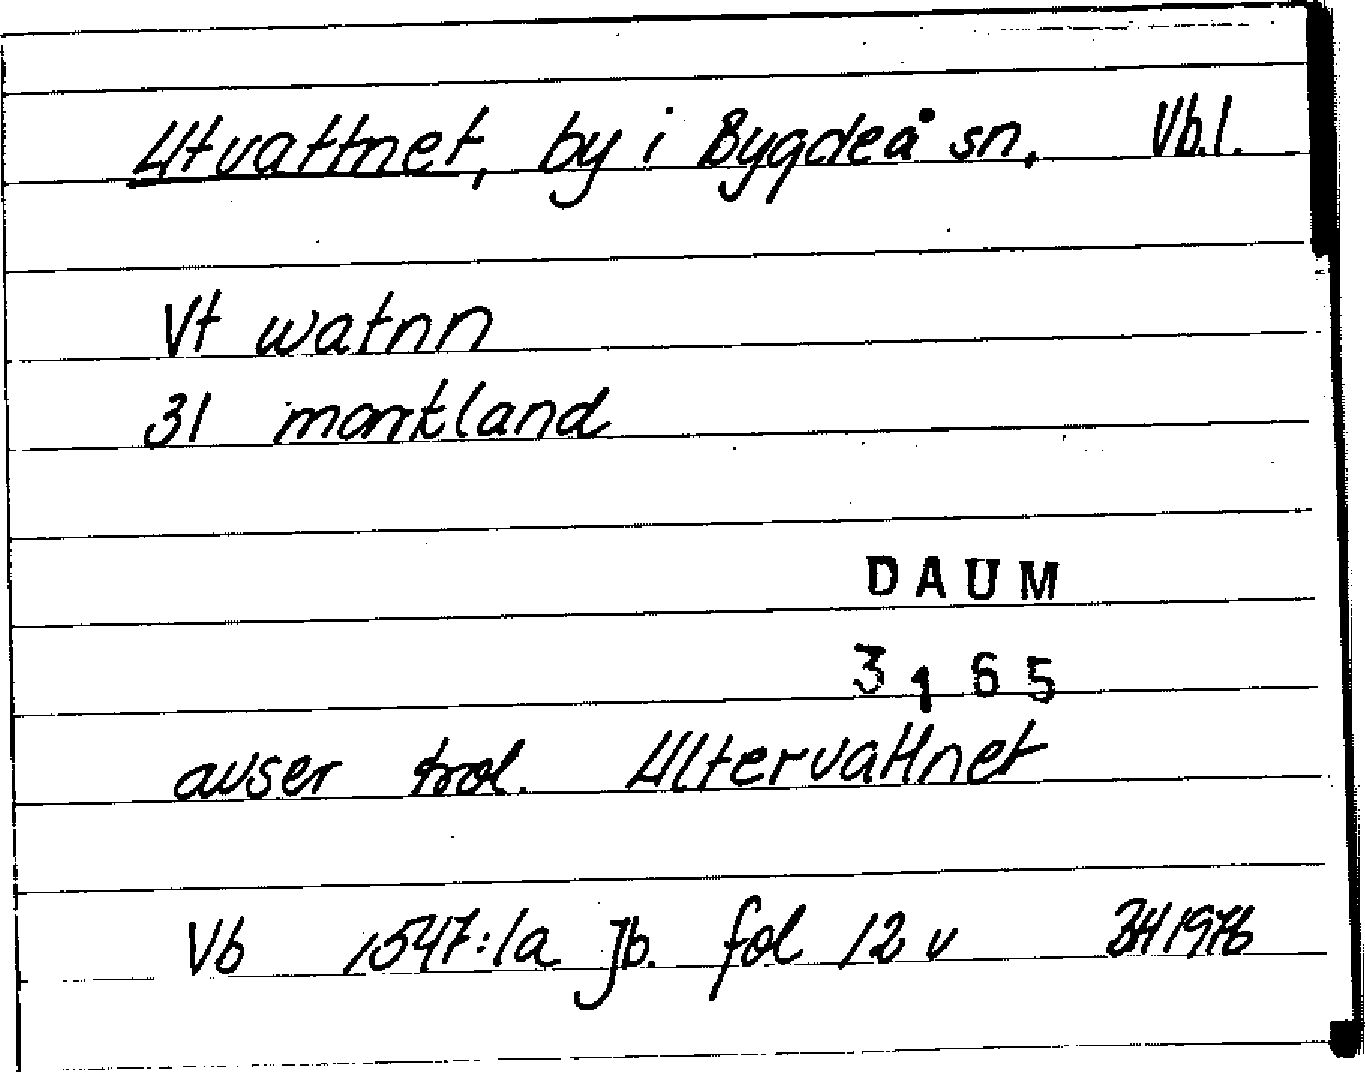 Utvattnet, by i Bygdeå sn, Vb.l.
Vt watnn
31 markland
DAUM
3165
avser trol. Ultervattnet
Vb 1547:1a Jb. fol 12 v BH 1976